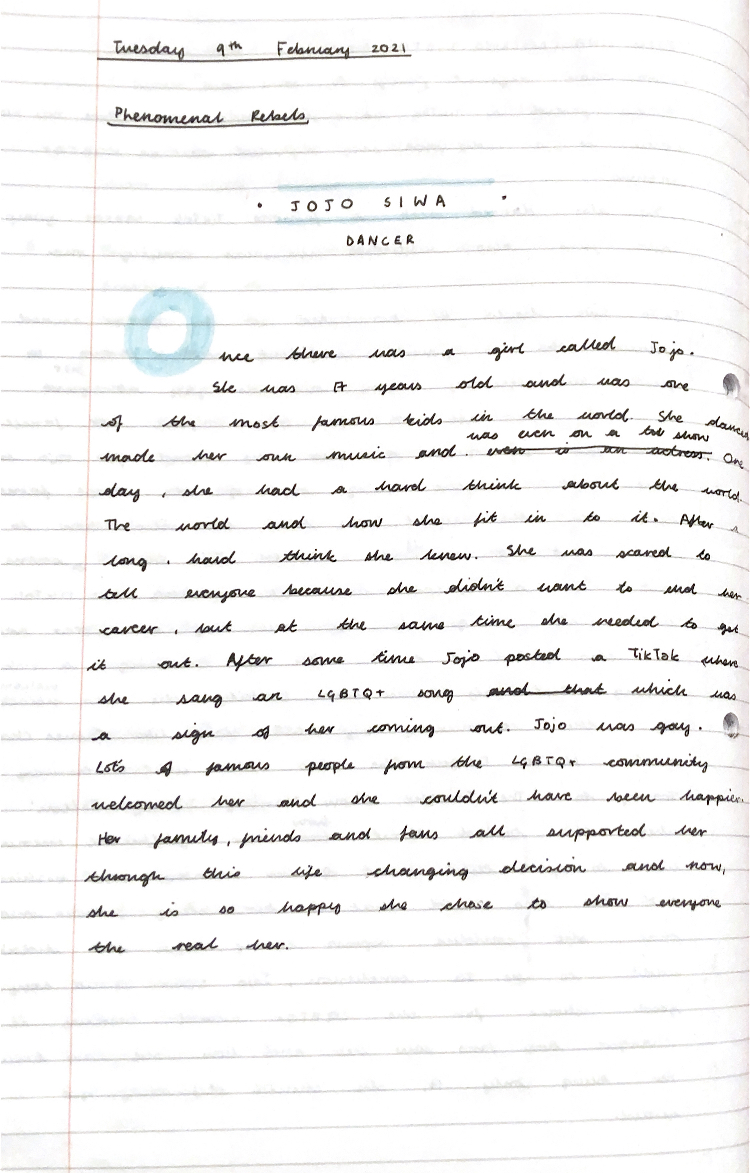 Tuesday 9th February 2021
Phenomenal Rebels
• JOJO SIWA •
DANCER
Once there was a girl called Jojo.
She was 17 years old and was one
of the most famous kids in the world. She dances
was even on a tv show
made her own music and even is an actress. One
day, she had a hard think about the world.
The world and how she fit in to it. After a
long, hard think she knew. She was scared to
tell everyone because she didn't want to end her
career, but at the same time she needed to get
it out. After some time Jojo posted a TikTok where
she sang an LGBTQ+ song and that which was
a sign of her coming out. Jojo was gay.
Lots of famous people from the LGBTQ+ community
welcomed her and she couldn't have been happier.
Her family, friends and fans all supported her
through this life changing decision and now,
she is so happy she chose to show everyone
the real her.